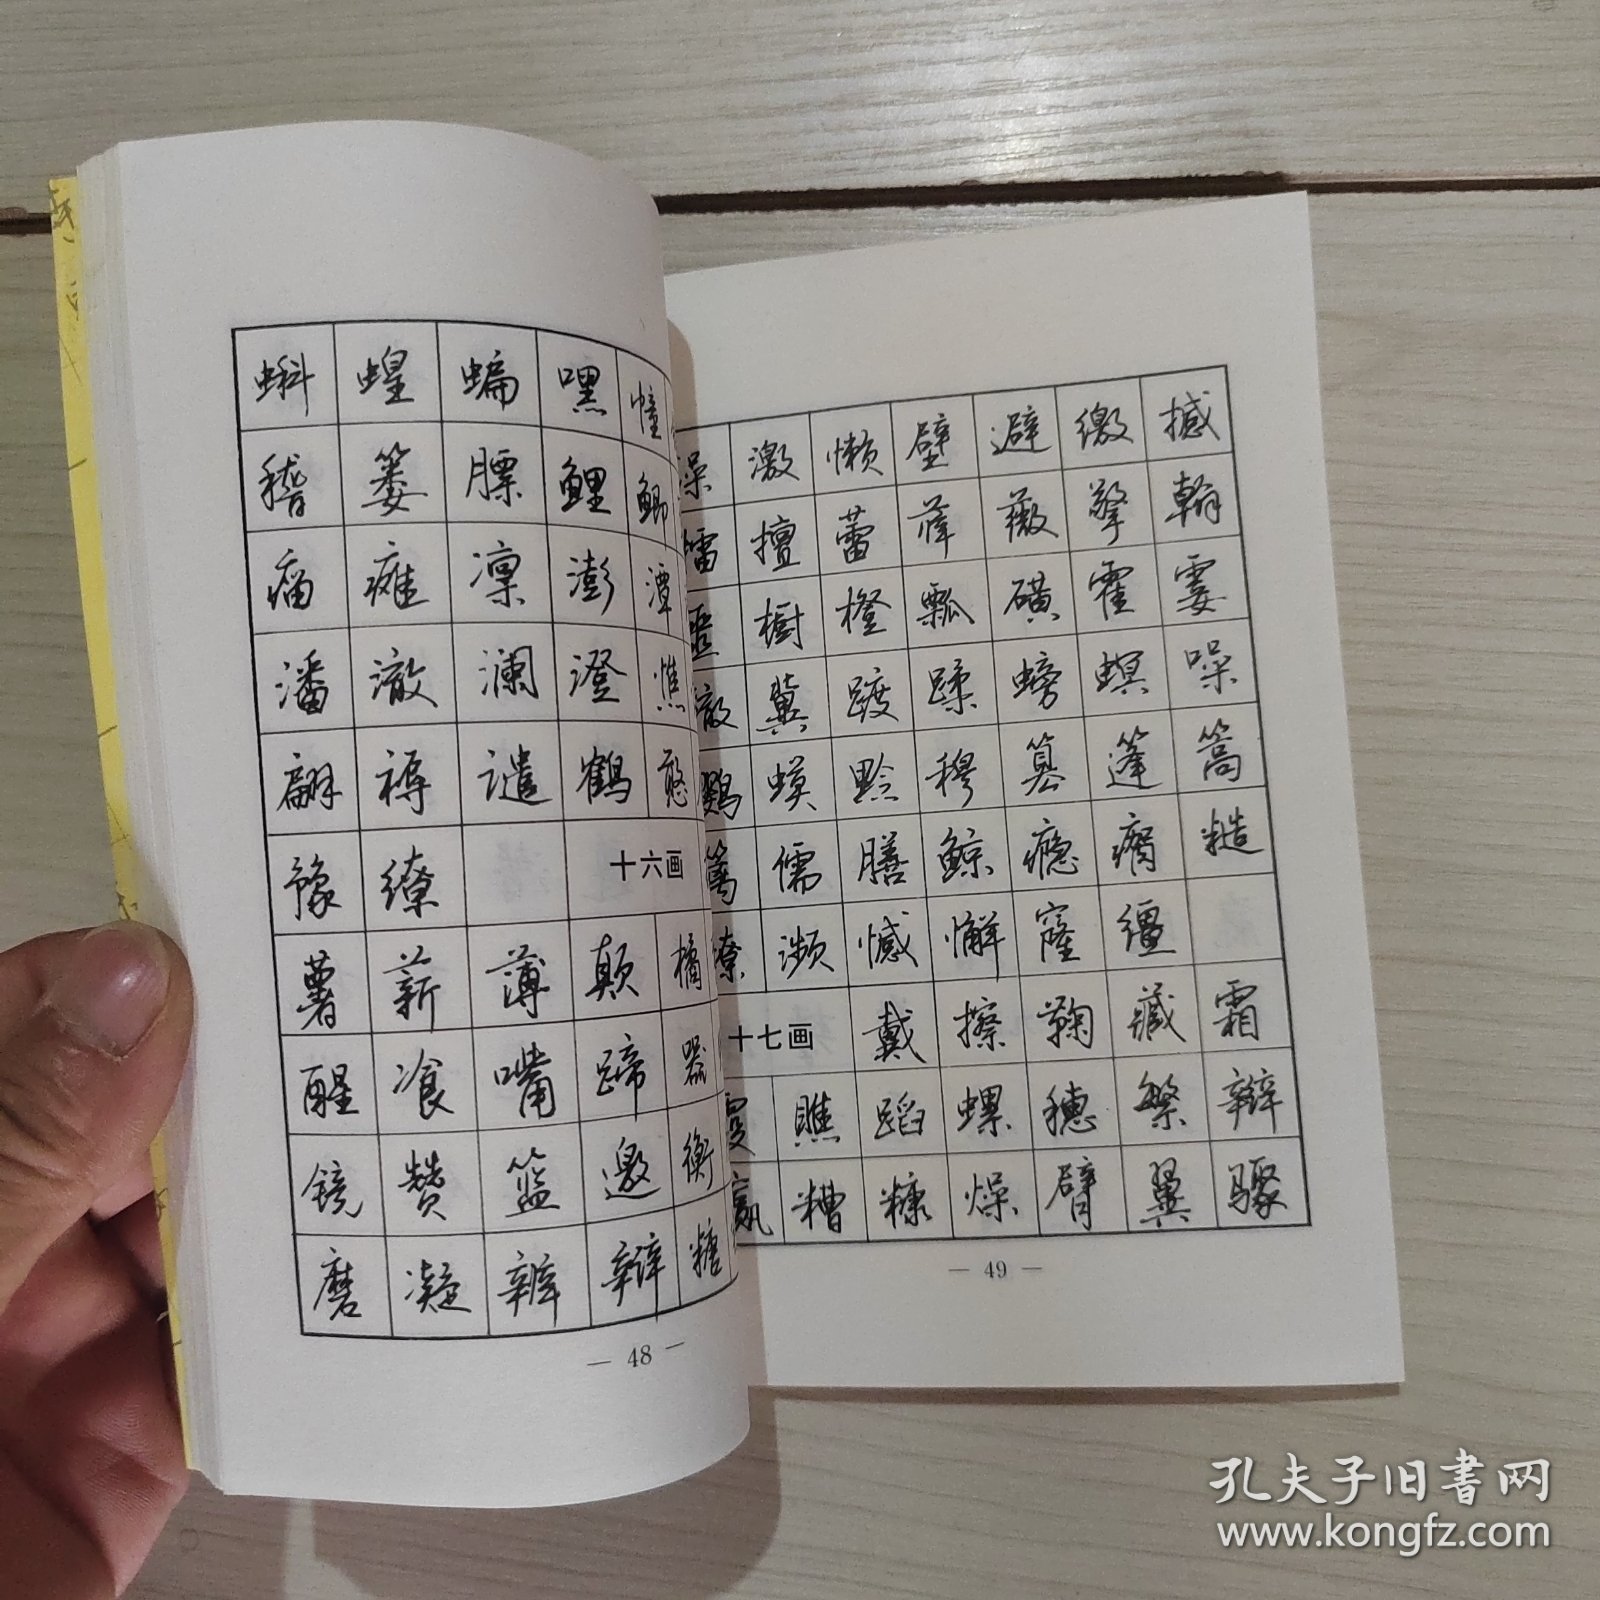 蝌 蝗 蝙 嘿 幢
稽 篓 膘 鲤 鲫
瘤 瘫 凛 澎 潭
潘 澈 澜 澄 憔
翩 褥 谴 鹤 憨
豫 缭 十六画
薯 薪 薄 颠 橘
醒 餐 嘴 蹄 器
镜 赞 篮 邀 衡
磨 凝 辨 辩 糖
— 48 —
澡 激 懒 壁 避 缴 撼
擂 擅 蕾 薛 薇 擎 翰
橱 橙 瓢 磺 霍 霎
辙 冀 踱 蹂 螃 螟 噪
鹦 蟆 黔 穆 篡 篷 篙
篱 儒 膳 鲸 瘾 瘸 糙
燎 濒 憾 懈 窿 缰
十七画 戴 擦 鞠 藏 霜
霞 瞧 蹈 螺 穗 繁 辫
赢 糟 糠 燥 臂 翼 骤
— 49 —
孔夫子旧书网
www.kongfz.com